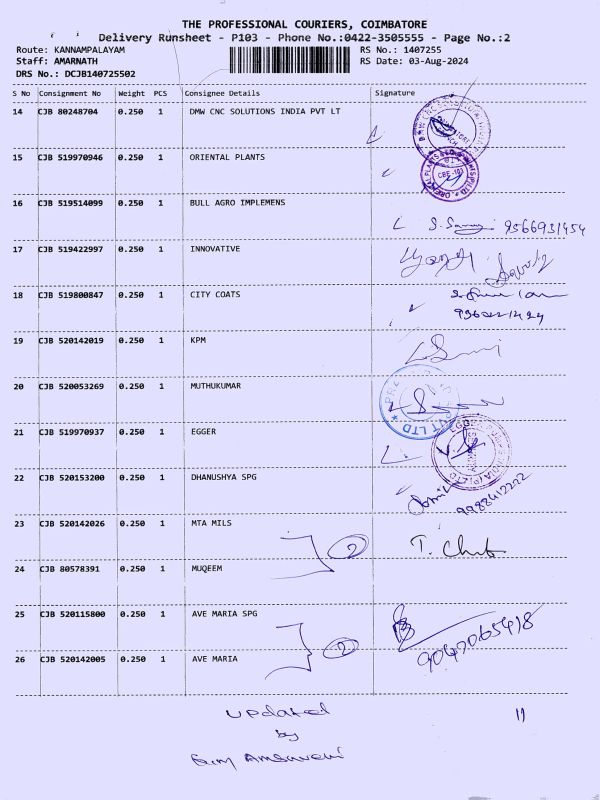 THE PROFESSIONAL COURIERS, COIMBATORE
Delivery Runsheet - P103 - Phone No.:0422-3505555 - Page No.:2
Route: KANNAMPALAYAM RS No.: 1407255
Staff: AMARNATH RS Date: 03-Aug-2024
DRS No.: DCJB140725502
S No Consignment No Weight PCS Consignee Details Signature
14 CJB 80248704 0.250 1 DMW CNC SOLUTIONS INDIA PVT LT
15 CJB 519970946 0.250 1 ORIENTAL PLANTS
16 CJB 519514099 0.250 1 BULL AGRO IMPLEMENS
9566931454
17 CJB 519422997 0.250 1 INNOVATIVE
18 CJB 519800847 0.250 1 CITY COATS
19 CJB 520142019 0.250 1 KPM
20 CJB 520053269 0.250 1 MUTHUKUMAR
21 CJB 519970937 0.250 1 EGGER
22 CJB 520153200 0.250 1 DHANUSHYA SPG
23 CJB 520142026 0.250 1 MTA MILS
2
24 CJB 80578391 0.250 1 MUQEEM
25 CJB 520115800 0.250 1 AVE MARIA SPG
9047065418
2
26 CJB 520142005 0.250 1 AVE MARIA
Updated
by